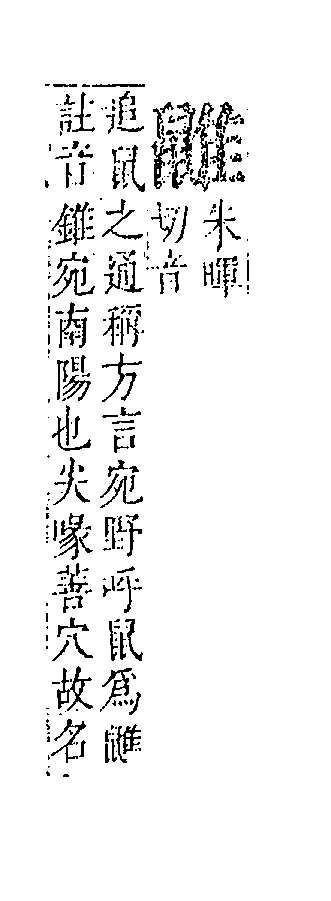 䶆
朱暉
切音
追鼠之通稱方言宛野呼鼠爲䶆
註音錐宛南陽也尖喙善穴故名